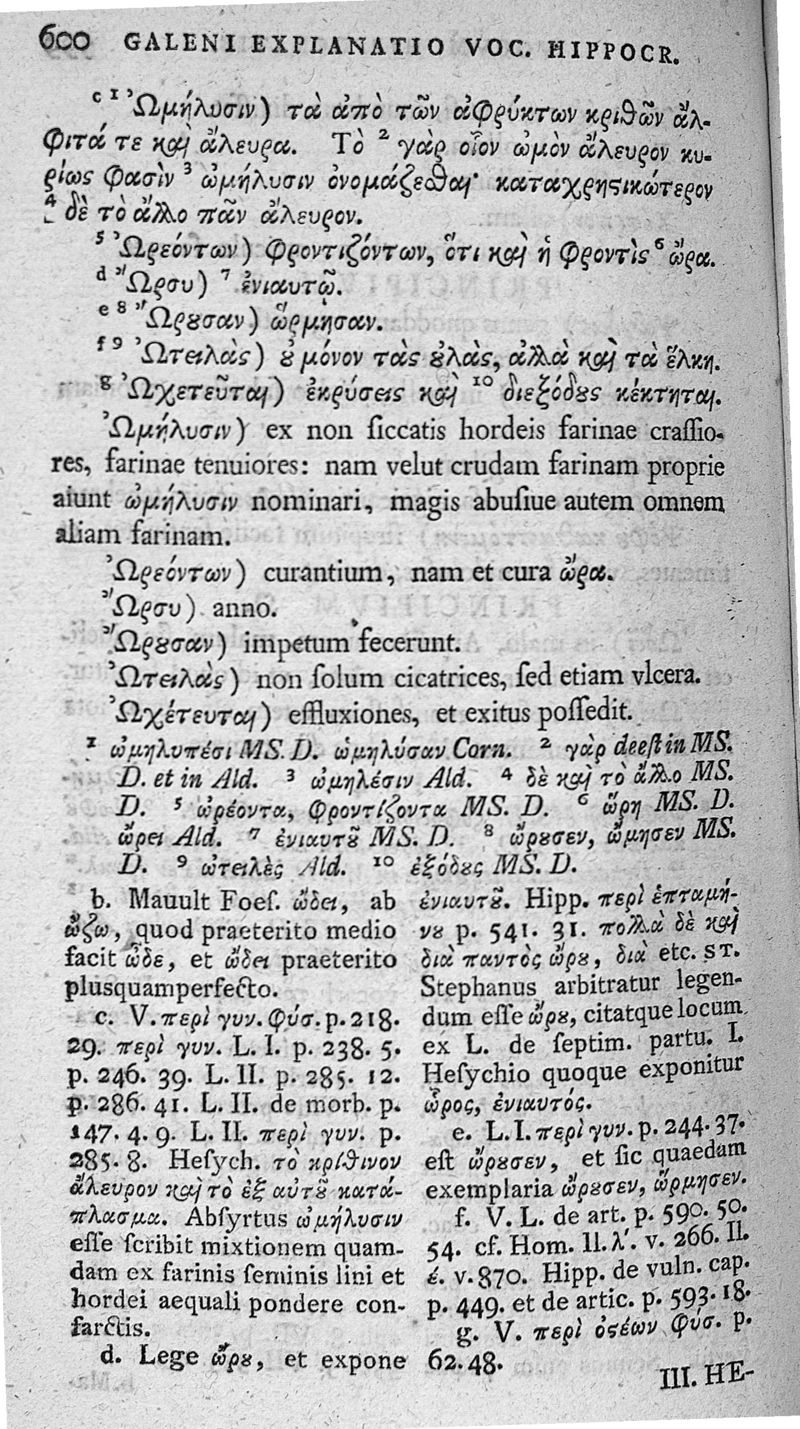 600 GALENI EXPLANATIO VOC. HIPPOCR.
c 1 Ὠμήλυσιν) τὰ ἀπὸ τῶν ἀφρύκτων κριθῶν ἄλ-
φιτά τε καὶ ἄλευρα. Τὸ 2 γὰρ οἷον ὠμὸν ἄλευρον κυ-
ρίως φασὶν 3 ὠμήλυσιν ὀνομάζεσθαι· καταχρηστικώτερον
4 δὲ τὸ ἄλλο πᾶν ἄλευρον.
5 Ὠρεόντων) φροντιζόντων, ὅτι καὶ ἡ φροντὶς 6 ὤρα.
d Ὤρσυ) 7 ἐνιαυτῷ.
e 8 Ὤρουσαν) ὥρμησαν.
f 9 Ὠτειλὰς) οὐ μόνον τὰς οὐλὰς, ἀλλὰ καὶ τὰ ἕλκη.
g Ὠχετεῦται) ἐκρύσεις καὶ 10 διεξόδους κέκτηται.
Ὠμήλυσιν) ex non ſiccatis hordeis farinae craſſio-
res, farinae tenuiores: nam velut crudam farinam proprie
aiunt ὠμήλυσιν nominari, magis abuſiue autem omnem
aliam farinam.
Ὠρεόντων) curantium, nam et cura ὤρα.
Ὤρσυ) anno.
Ὤρουσαν) impetum fecerunt.
Ὠτειλὰς) non ſolum cicatrices, ſed etiam vlcera.
Ὠχέτευται) effluxiones, et exitus poſſedit.
1 ὠμηλυπέσι MS. D. ὠμηλύσαν Corn. 2 γὰρ deeſt in MS.
D. et in Ald. 3 ὠμηλέσιν Ald. 4 δὲ καὶ τὸ ἄλλο MS.
D. 5 ὠρέοντα, φροντίζοντα MS. D. 6 ὥρη MS. D.
ὥρει Ald. 7 ἐνιαυτοῦ MS. D. 8 ὤρουσεν, ὥμησεν MS.
D. 9 ὠτειλὲς Ald. 10 ἐξόδους MS. D.
b. Mauult Foeſ. ὤδει, ab
ὄζω, quod praeterito medio
facit ὦδε, et ὤδει praeterito
plusquamperfecto.
c. V. περὶ γυν. φύσ. p. 218.
29. περὶ γυν. L. I. p. 238. 5.
p. 246. 39. L. II. p. 285. 12.
p. 286. 41. L. II. de morb. p.
147. 4. 9. L. II. περὶ γυν. p.
285. 8. Heſych. τὸ κρίθινον
ἄλευρον καὶ τὸ ἐξ αὐτοῦ κατά-
πλασμα. Abſyrtus ὠμήλυσιν
eſſe ſcribit mixtionem quam-
dam ex farinis ſeminis lini et
hordei aequali pondere con-
farctis.
d. Lege ὤρου, et expone
ἐνιαυτοῦ. Hipp. περὶ ἑπταμή-
νου p. 541. 31. πολλὰ δὲ καὶ
διὰ παντὸς ὤρου, διὰ etc. ST.
Stephanus arbitratur legen-
dum eſſe ὤρου, citatque locum
ex L. de ſeptim. partu. I.
Heſychio quoque exponitur
ὦρος, ἐνιαυτός.
e. L. I. περὶ γυν. p. 244. 37.
eſt ὤρουσεν, et ſic quaedam
exemplaria ὤρουσεν, ὥρμησεν.
f. V. L. de art. p. 590. 50.
54. cf. Hom. Il. λ΄. v. 266. Il.
έ. v. 870. Hipp. de vuln. cap.
p. 449. et de artic. p. 593. 18.
g. V. περὶ ὀστέων φύσ. p.
62. 48.
III. HE-